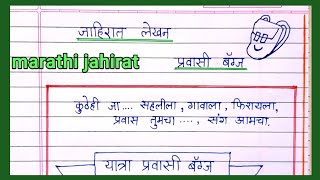 जाहिरात लेखन
marathi jahirat
प्रवासी बॅग्ज
कुठेही जा.... सहलीला, गावाला, फिरायला,
प्रवास तुमचा ...., संग आमचा.
यात्रा प्रवासी बॅग्ज